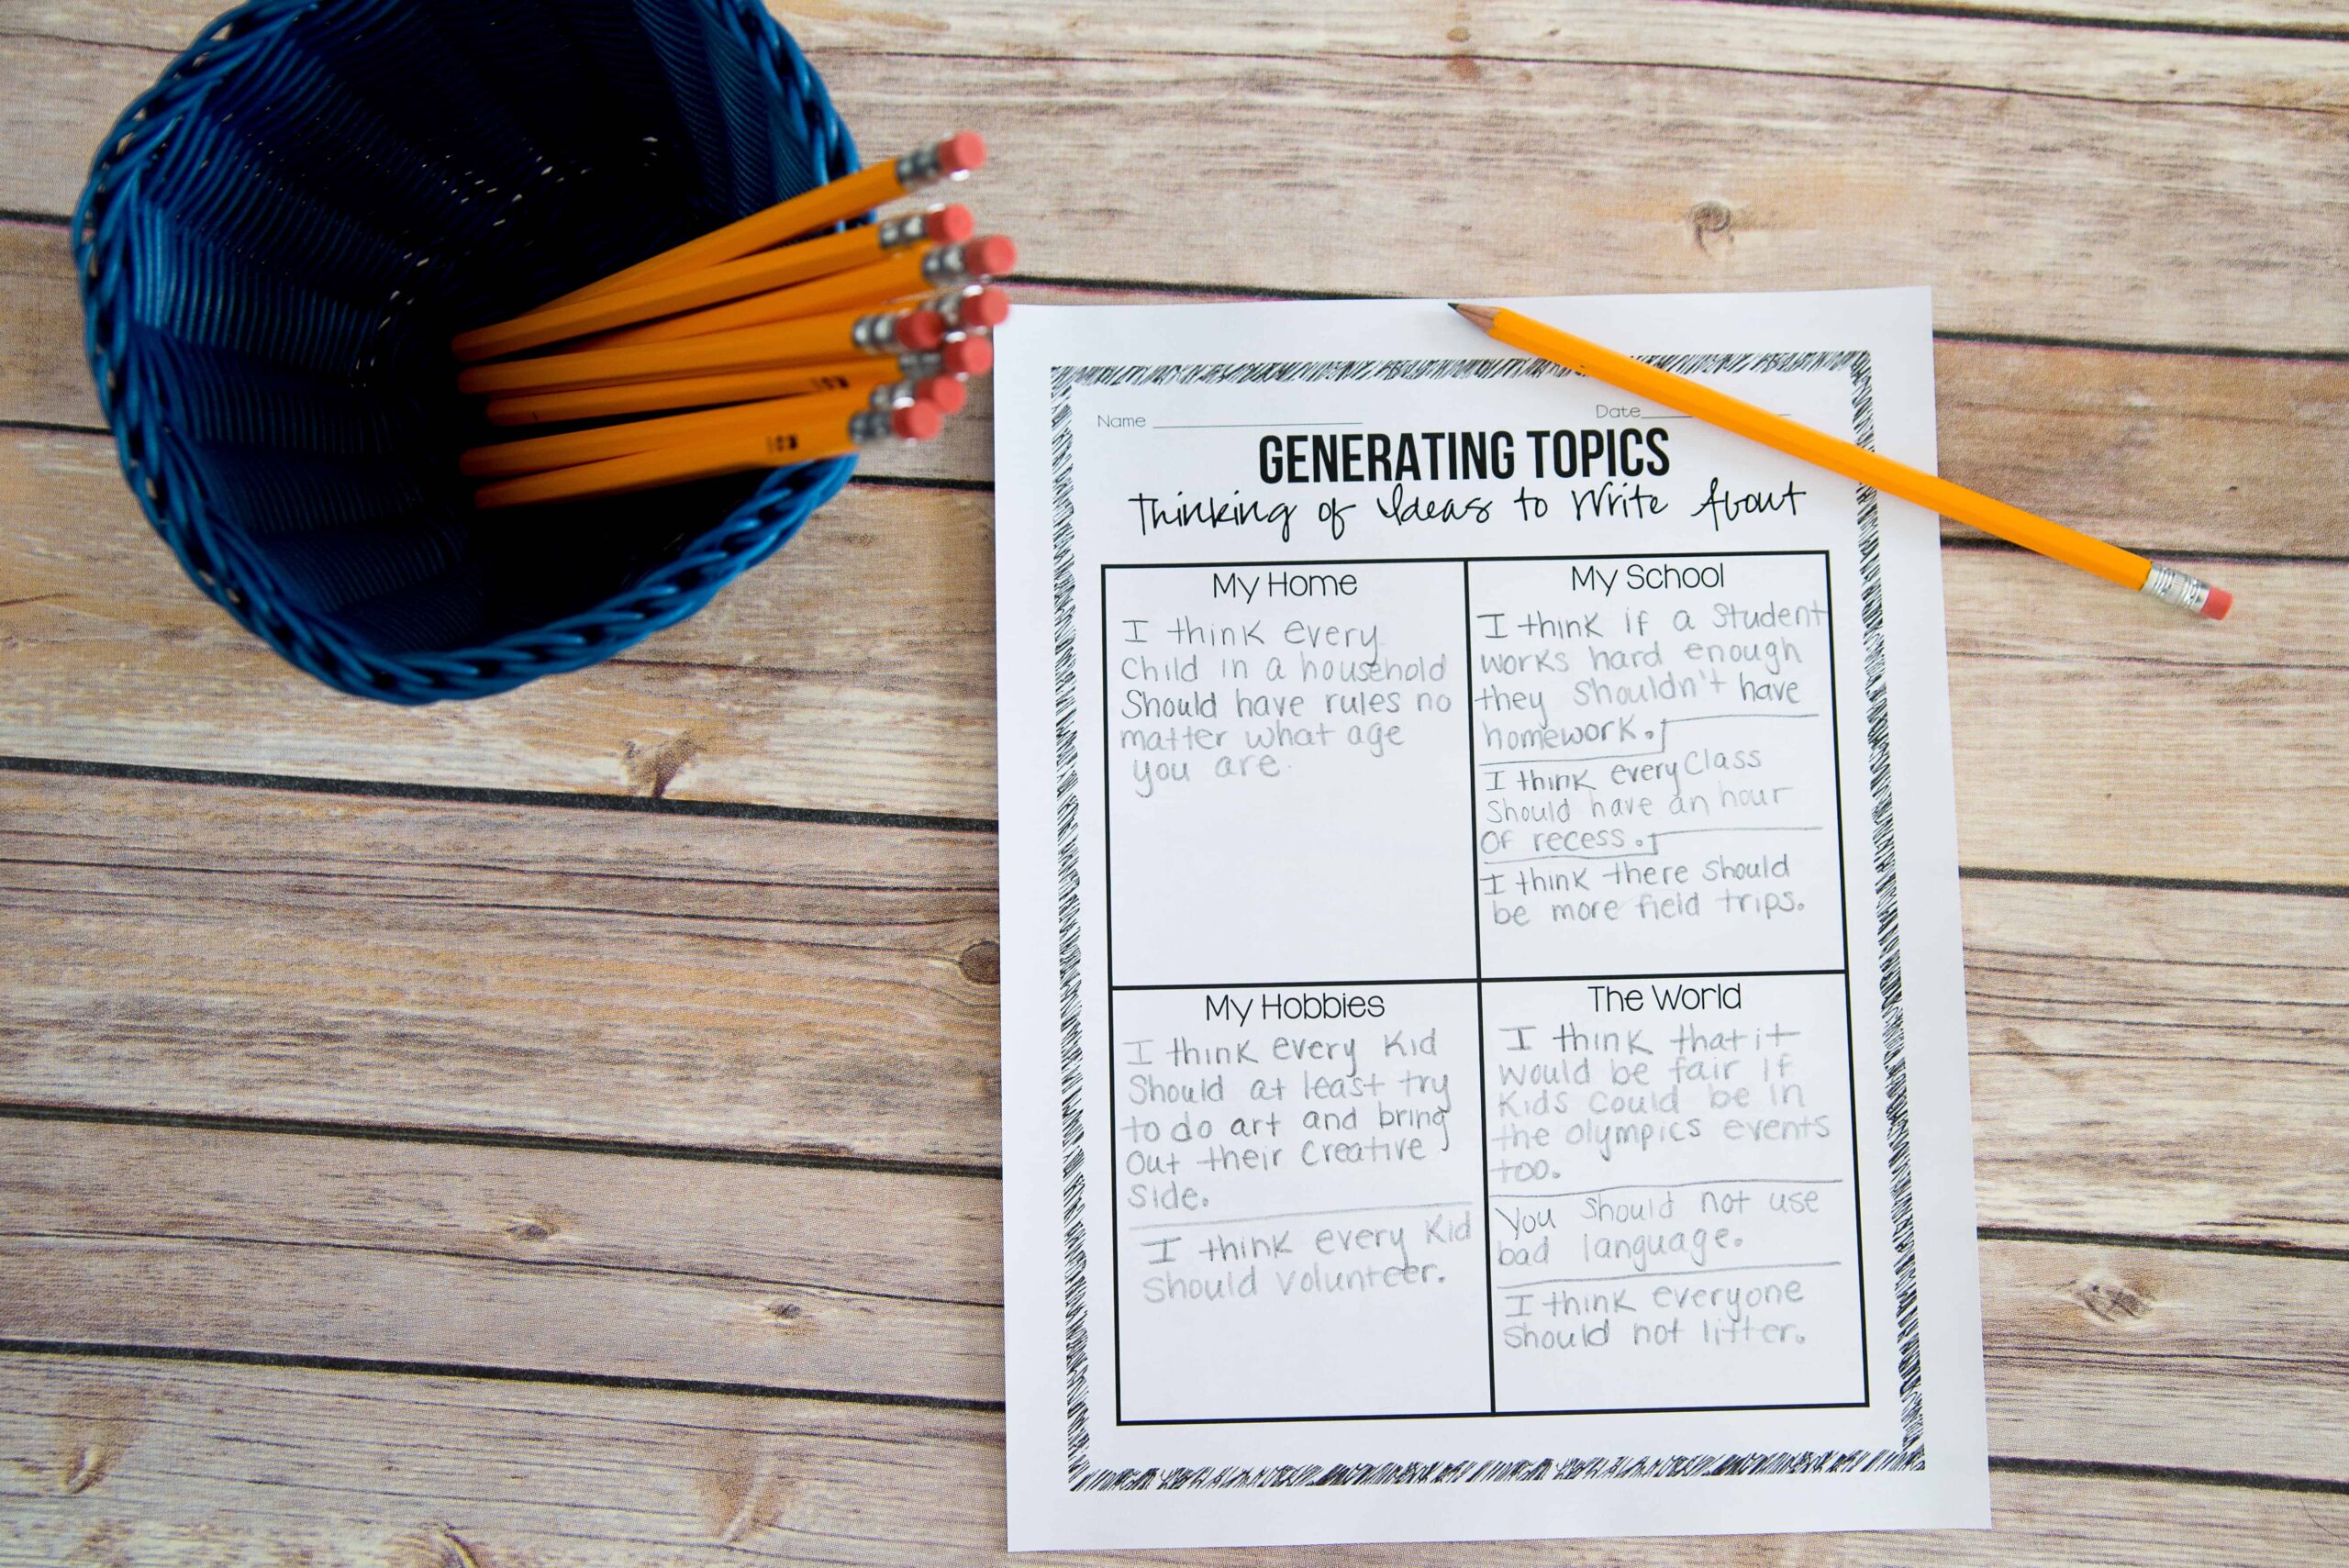 Name
Date
GENERATING TOPICS
Thinking of Ideas to Write About
My Home
I think every
Child in a household
Should have rules no
matter what age
you are.
My School
I think if a Student
works hard enough
they shouldn't have
homework.
I think every Class
Should have an hour
Of recess.
I think there should
be more field trips.
My Hobbies
I think every Kid
Should at least try
to do art and bring
Out their Creative
Side.
I think every Kid
Should volunteer.
The World
I think that it
would be fair if
Kids could be in
the olympics events
too.
You should not use
bad language.
I think everyone
Should not litter.